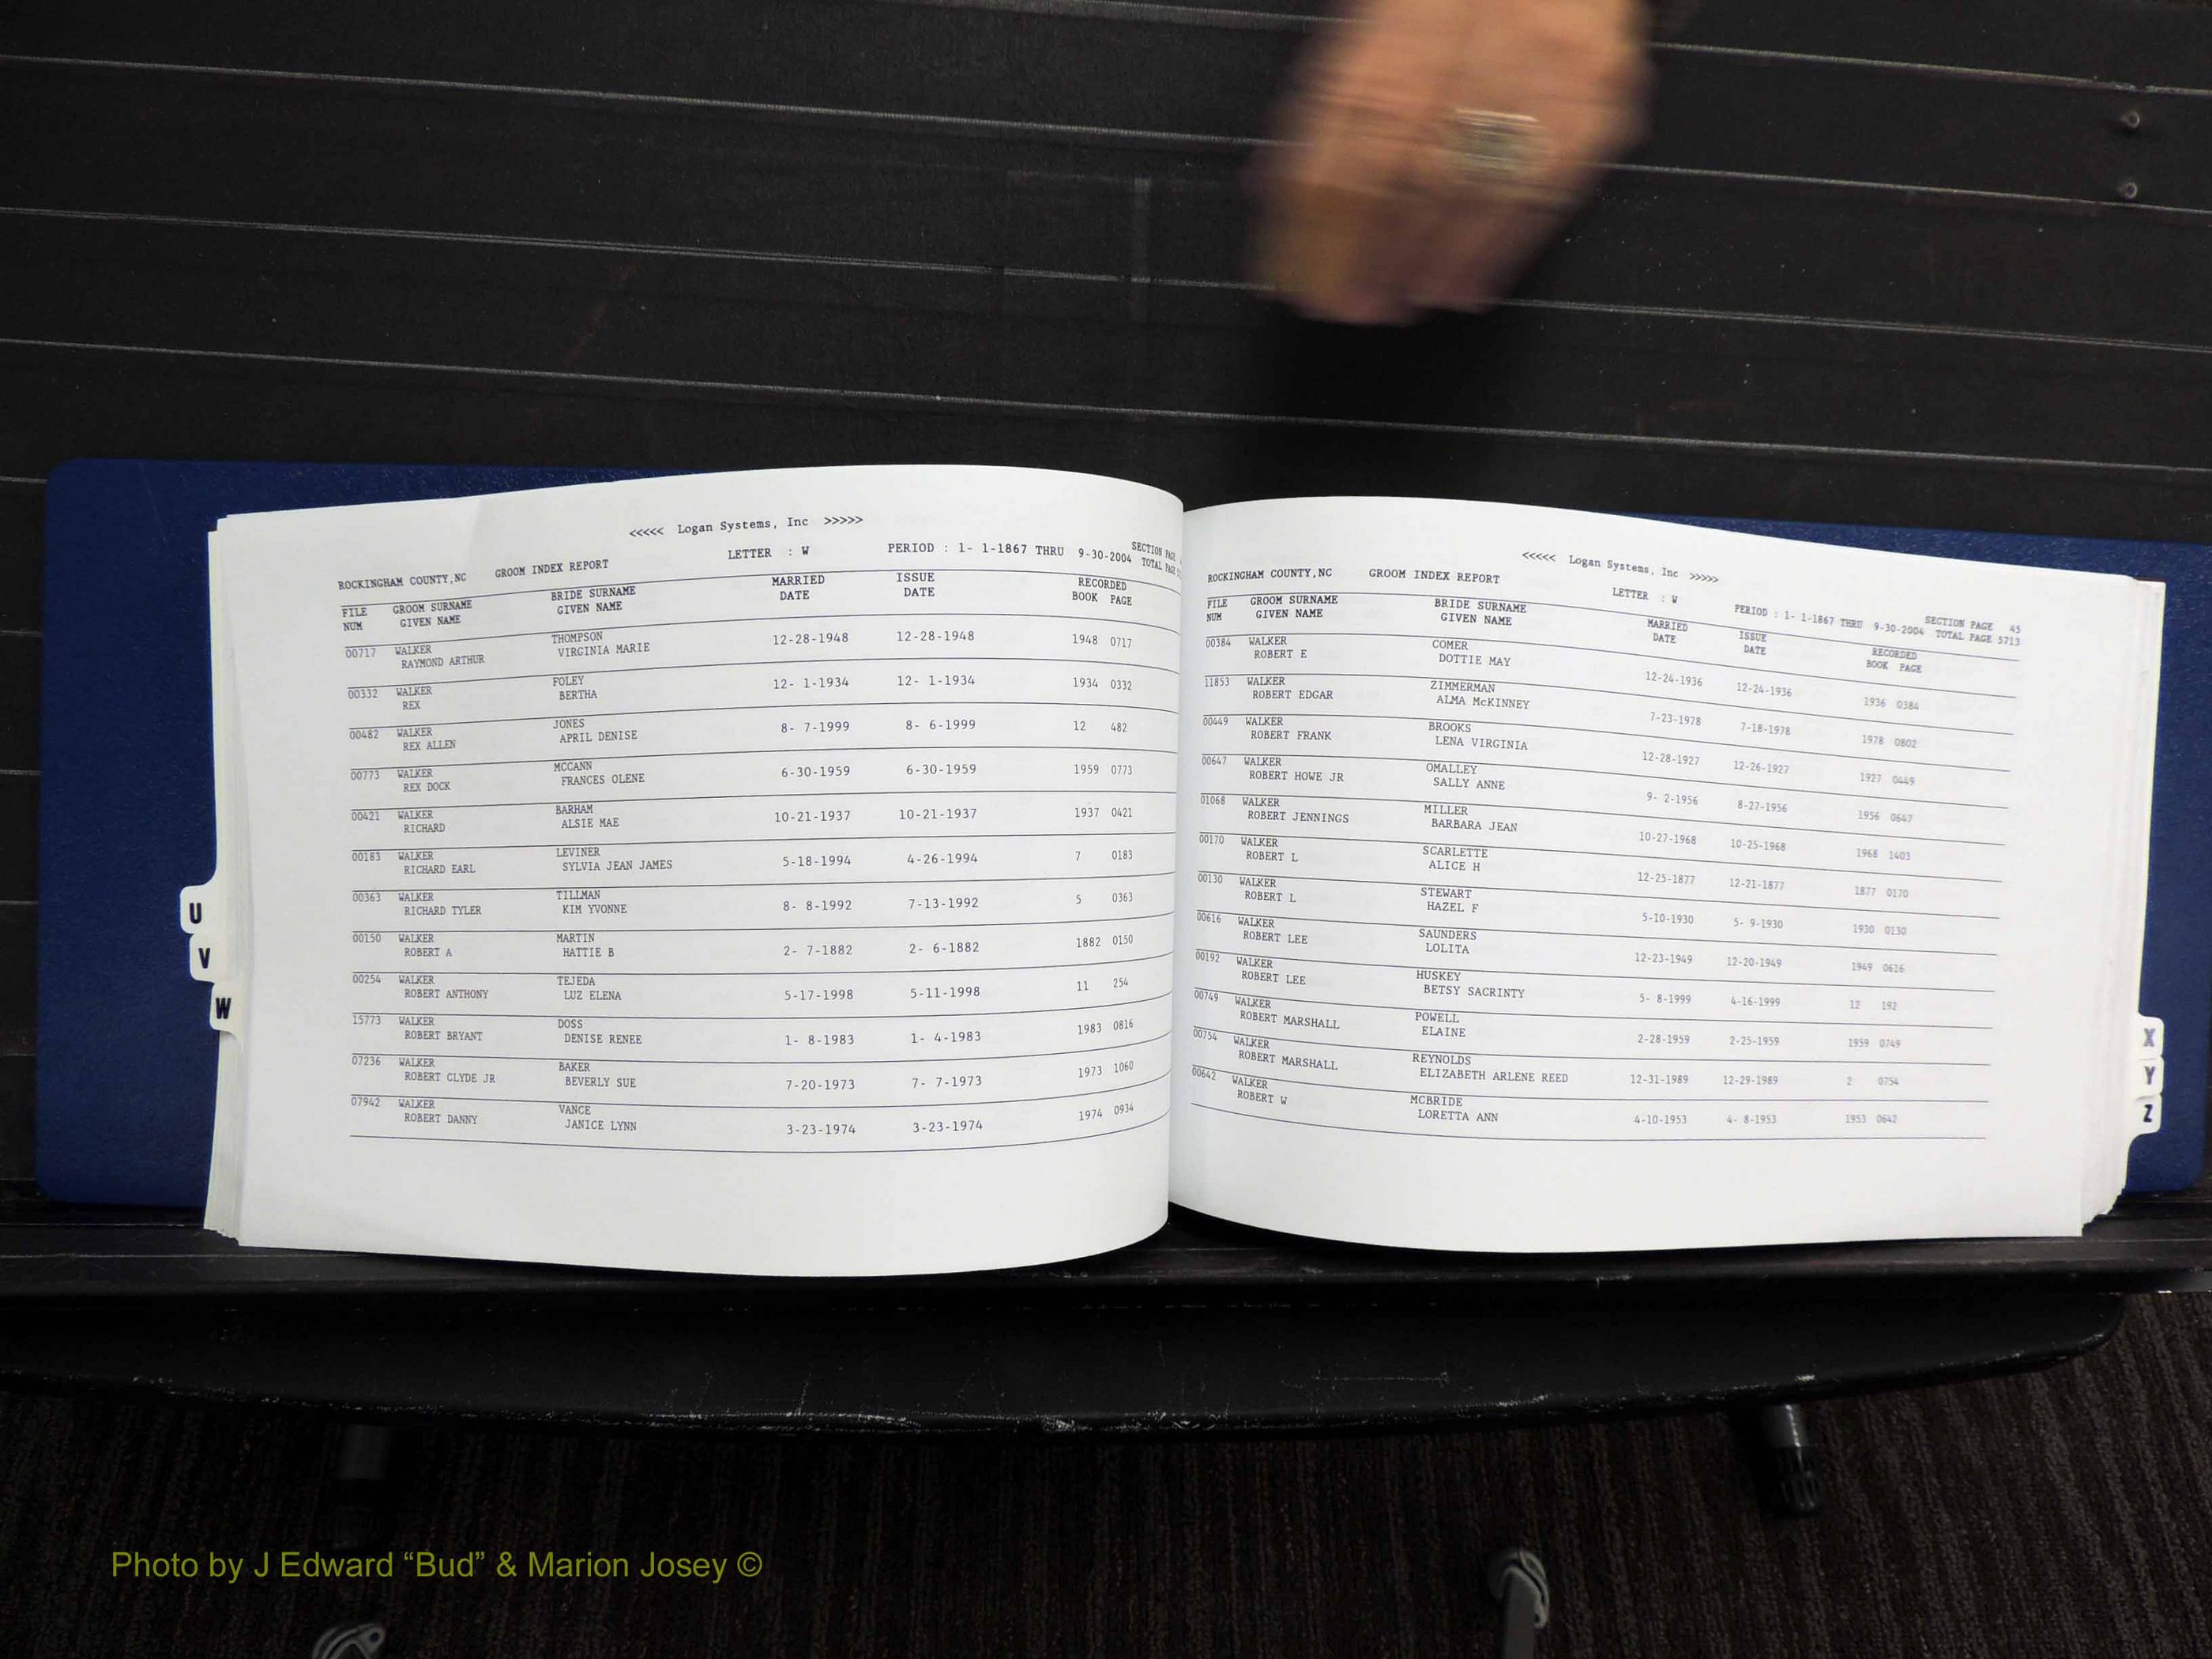 <<<<< Logan Systems, Inc >>>>>
ROCKINGHAM COUNTY,NC GROOM INDEX REPORT LETTER : W PERIOD : 1- 1-1867 THRU 9-30-2004 SECTION PAGE
TOTAL PAGE
FILE GROOM SURNAME BRIDE SURNAME MARRIED ISSUE RECORDED
NUM GIVEN NAME GIVEN NAME DATE DATE BOOK PAGE
00717 WALKER THOMPSON 12-28-1948 12-28-1948 1948 0717
RAYMOND ARTHUR VIRGINIA MARIE
00332 WALKER FOLEY 12- 1-1934 12- 1-1934 1934 0332
REX BERTHA
00482 WALKER JONES 8- 7-1999 8- 6-1999 12 482
REX ALLEN APRIL DENISE
00773 WALKER MCCANN 6-30-1959 6-30-1959 1959 0773
REX DOCK FRANCES OLENE
00421 WALKER BARHAM 10-21-1937 10-21-1937 1937 0421
RICHARD ALSIE MAE
00183 WALKER LEVINER 5-18-1994 4-26-1994 7 0183
RICHARD EARL SYLVIA JEAN JAMES
00363 WALKER TILLMAN 8- 8-1992 7-13-1992 5 0363
RICHARD TYLER KIM YVONNE
00150 WALKER MARTIN 2- 7-1882 2- 6-1882 1882 0150
ROBERT A HATTIE B
00254 WALKER TEJEDA 5-17-1998 5-11-1998 11 254
ROBERT ANTHONY LUZ ELENA
15773 WALKER DOSS 1- 8-1983 1- 4-1983 1983 0816
ROBERT BRYANT DENISE RENEE
07236 WALKER BAKER 7-20-1973 7- 7-1973 1973 1060
ROBERT CLYDE JR BEVERLY SUE
07942 WALKER VANCE 3-23-1974 3-23-1974 1974 0934
ROBERT DANNY JANICE LYNN
U
V
W
<<<<< Logan Systems, Inc >>>>>
ROCKINGHAM COUNTY,NC GROOM INDEX REPORT LETTER : W PERIOD : 1- 1-1867 THRU 9-30-2004 SECTION PAGE 45
TOTAL PAGE 5713
FILE GROOM SURNAME BRIDE SURNAME MARRIED ISSUE RECORDED
NUM GIVEN NAME GIVEN NAME DATE DATE BOOK PAGE
00384 WALKER COMER 12-24-1936 12-24-1936 1936 0384
ROBERT E DOTTIE MAY
11853 WALKER ZIMMERMAN 7-23-1978 7-18-1978 1978 0802
ROBERT EDGAR ALMA McKINNEY
00449 WALKER BROOKS 12-28-1927 12-26-1927 1927 0449
ROBERT FRANK LENA VIRGINIA
00647 WALKER OMALLEY 9- 2-1956 8-27-1956 1956 0647
ROBERT HOWE JR SALLY ANNE
01068 WALKER MILLER 10-27-1968 10-25-1968 1968 1403
ROBERT JENNINGS BARBARA JEAN
00170 WALKER SCARLETTE 12-25-1877 12-21-1877 1877 0170
ROBERT L ALICE H
00130 WALKER STEWART 5-10-1930 5- 9-1930 1930 0130
ROBERT L HAZEL F
00616 WALKER SAUNDERS 12-23-1949 12-20-1949 1949 0616
ROBERT LEE LOLITA
00192 WALKER HUSKEY 5- 8-1999 4-16-1999 12 192
ROBERT LEE BETSY SACRINTY
00749 WALKER POWELL 2-28-1959 2-25-1959 1959 0749
ROBERT MARSHALL ELAINE
00754 WALKER REYNOLDS 12-31-1989 12-29-1989 2 0754
ROBERT MARSHALL ELIZABETH ARLENE REED
00642 WALKER MCBRIDE 4-10-1953 4- 8-1953 1953 0642
ROBERT W LORETTA ANN
X
Y
Z
Photo by J Edward “Bud” & Marion Josey ©